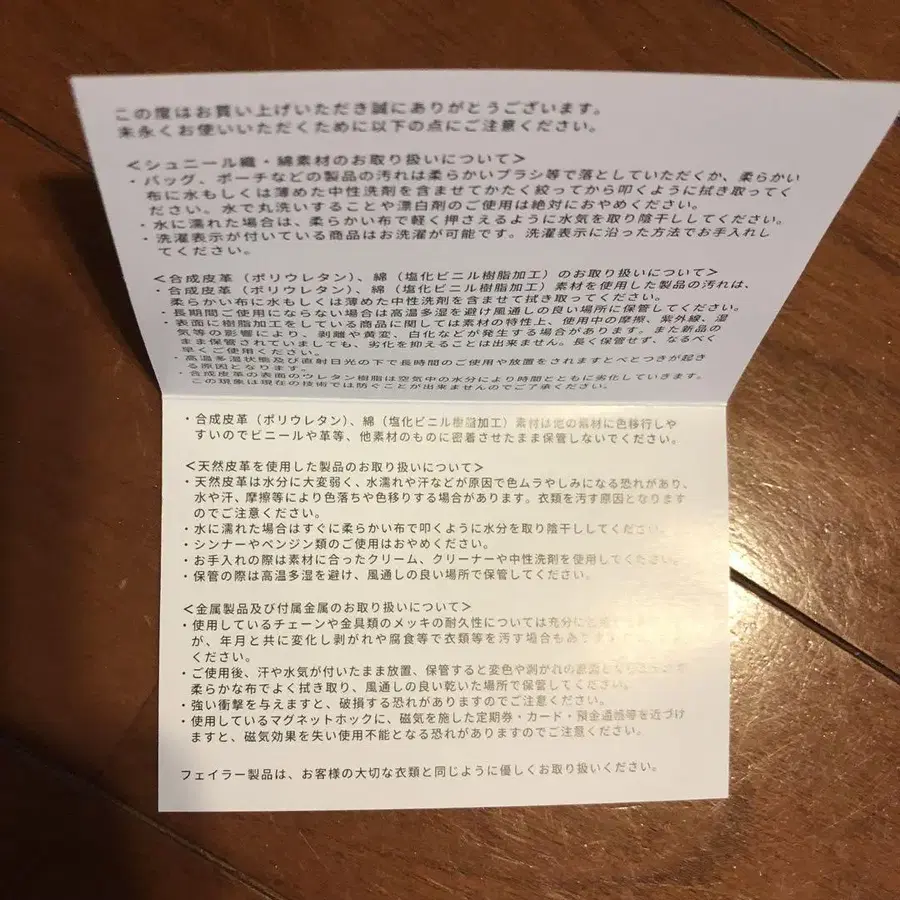 この度はお買い上げいただき誠にありがとうございます。
末永くお使いいただくために以下の点にご注意ください。
<シュニール織・綿素材のお取り扱いについて>
・バッグ、ポーチなどの製品の汚れは柔らかいブラシ等で落としていただくか、柔らかい
布に水もしくは薄めた中性洗剤を含ませてかたく絞ってから叩くように拭き取ってく
ださい。水で丸洗いすることや漂白剤のご使用は絶対におやめください。
・水に濡れた場合は、柔らかい布で軽く押さえるように水気を取り陰干ししてください。
・洗濯表示が付いている商品はお洗濯が可能です。洗濯表示に沿った方法でお手入れし
てください。
<合成皮革（ポリウレタン）、綿（塩化ビニル樹脂加工）のお取り扱いについて>
・合成皮革（ポリウレタン）、綿（塩化ビニル樹脂加工）素材を使用した製品の汚れは、
柔らかい布に水もしくは薄めた中性洗剤を含ませて拭き取ってください。
・長期間ご使用にならない場合は高温多湿を避け風通しの良い場所に保管してください。
・表面に樹脂加工をしている商品に関しては素材の特性上、使用中の摩擦、紫外線、湿
気等の影響により、剥離や黄変、白化などが発生する場合があります。また新品の
まま保管されていましても、劣化を抑えることは出来ません。長く保管せず、なるべく
早くご使用ください。
・高温多湿状態及び直射日光の下で長時間のご使用や放置をされますとべとつきが起き
る原因となります。
・合成皮革の表面のウレタン樹脂は空気中の水分により時間とともに劣化していきます。
この現象は現在の技術では防ぐことが出来ませんのでご了承ください。
・合成皮革（ポリウレタン）、綿（塩化ビニル樹脂加工）素材は他の素材に色移行しや
すいのでビニールや革等、他素材のものに密着させたまま保管しないでください。
<天然皮革を使用した製品のお取り扱いについて>
・天然皮革は水分に大変弱く、水濡れや汗などが原因で色ムラやしみになる恐れがあり、
水や汗、摩擦等により色落ちや色移りする場合があります。衣類を汚す原因となります
のでご注意ください。
・水に濡れた場合はすぐに柔らかい布で叩くように水分を取り陰干ししてください。
・シンナーやベンジン類のご使用はおやめください。
・お手入れの際は素材に合ったクリーム、クリーナーや中性洗剤を使用してください。
・保管の際は高温多湿を避け、風通しの良い場所で保管してください。
<金属製品及び付属金属のお取り扱いについて>
・使用しているチェーンや金具類のメッキの耐久性については充分に
が、年月と共に変化し剥がれや腐食等で衣類等を汚す場合もあ
ください。
・ご使用後、汗や水気が付いたまま放置、保管すると変色や剥がれの原因となります
柔らかな布でよく拭き取り、風通しの良い乾いた場所で保管してください。
・強い衝撃を与えますと、破損する恐れがありますのでご注意ください。
・使用しているマグネットホックに、磁気を施した定期券・カード・預金通帳等を近づけ
ますと、磁気効果を失い使用不能となる恐れがありますのでご注意ください。
フェイラー製品は、お客様の大切な衣類と同じように優しくお取り扱いください。